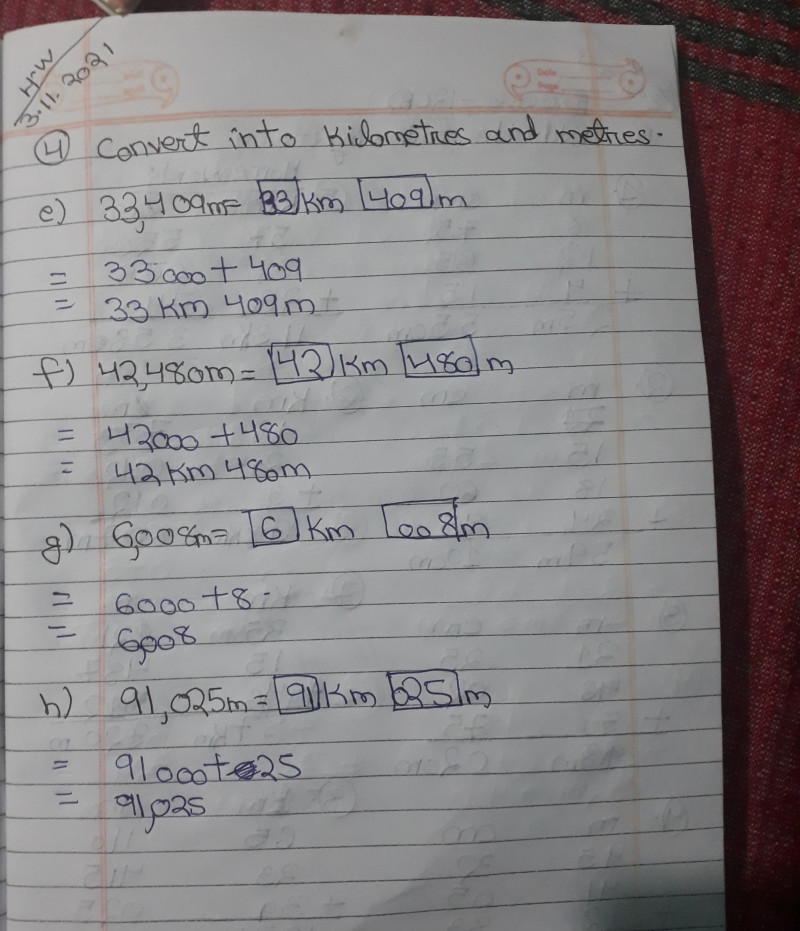 H.W
3.11.2021
Date
Page
④ Convert into Kilometres and metres.
e) 33,409m= 33 Km 409 m
= 33000+409
= 33 Km 409m
f) 42,480m= 42 Km 480 m
= 42000 +480
= 42 Km 480m
g) 6,008m= 6 Km 008 m
= 6000+8
= 6,008
h) 91,025m= 91 Km 025 m
= 91000+25
= 91,025